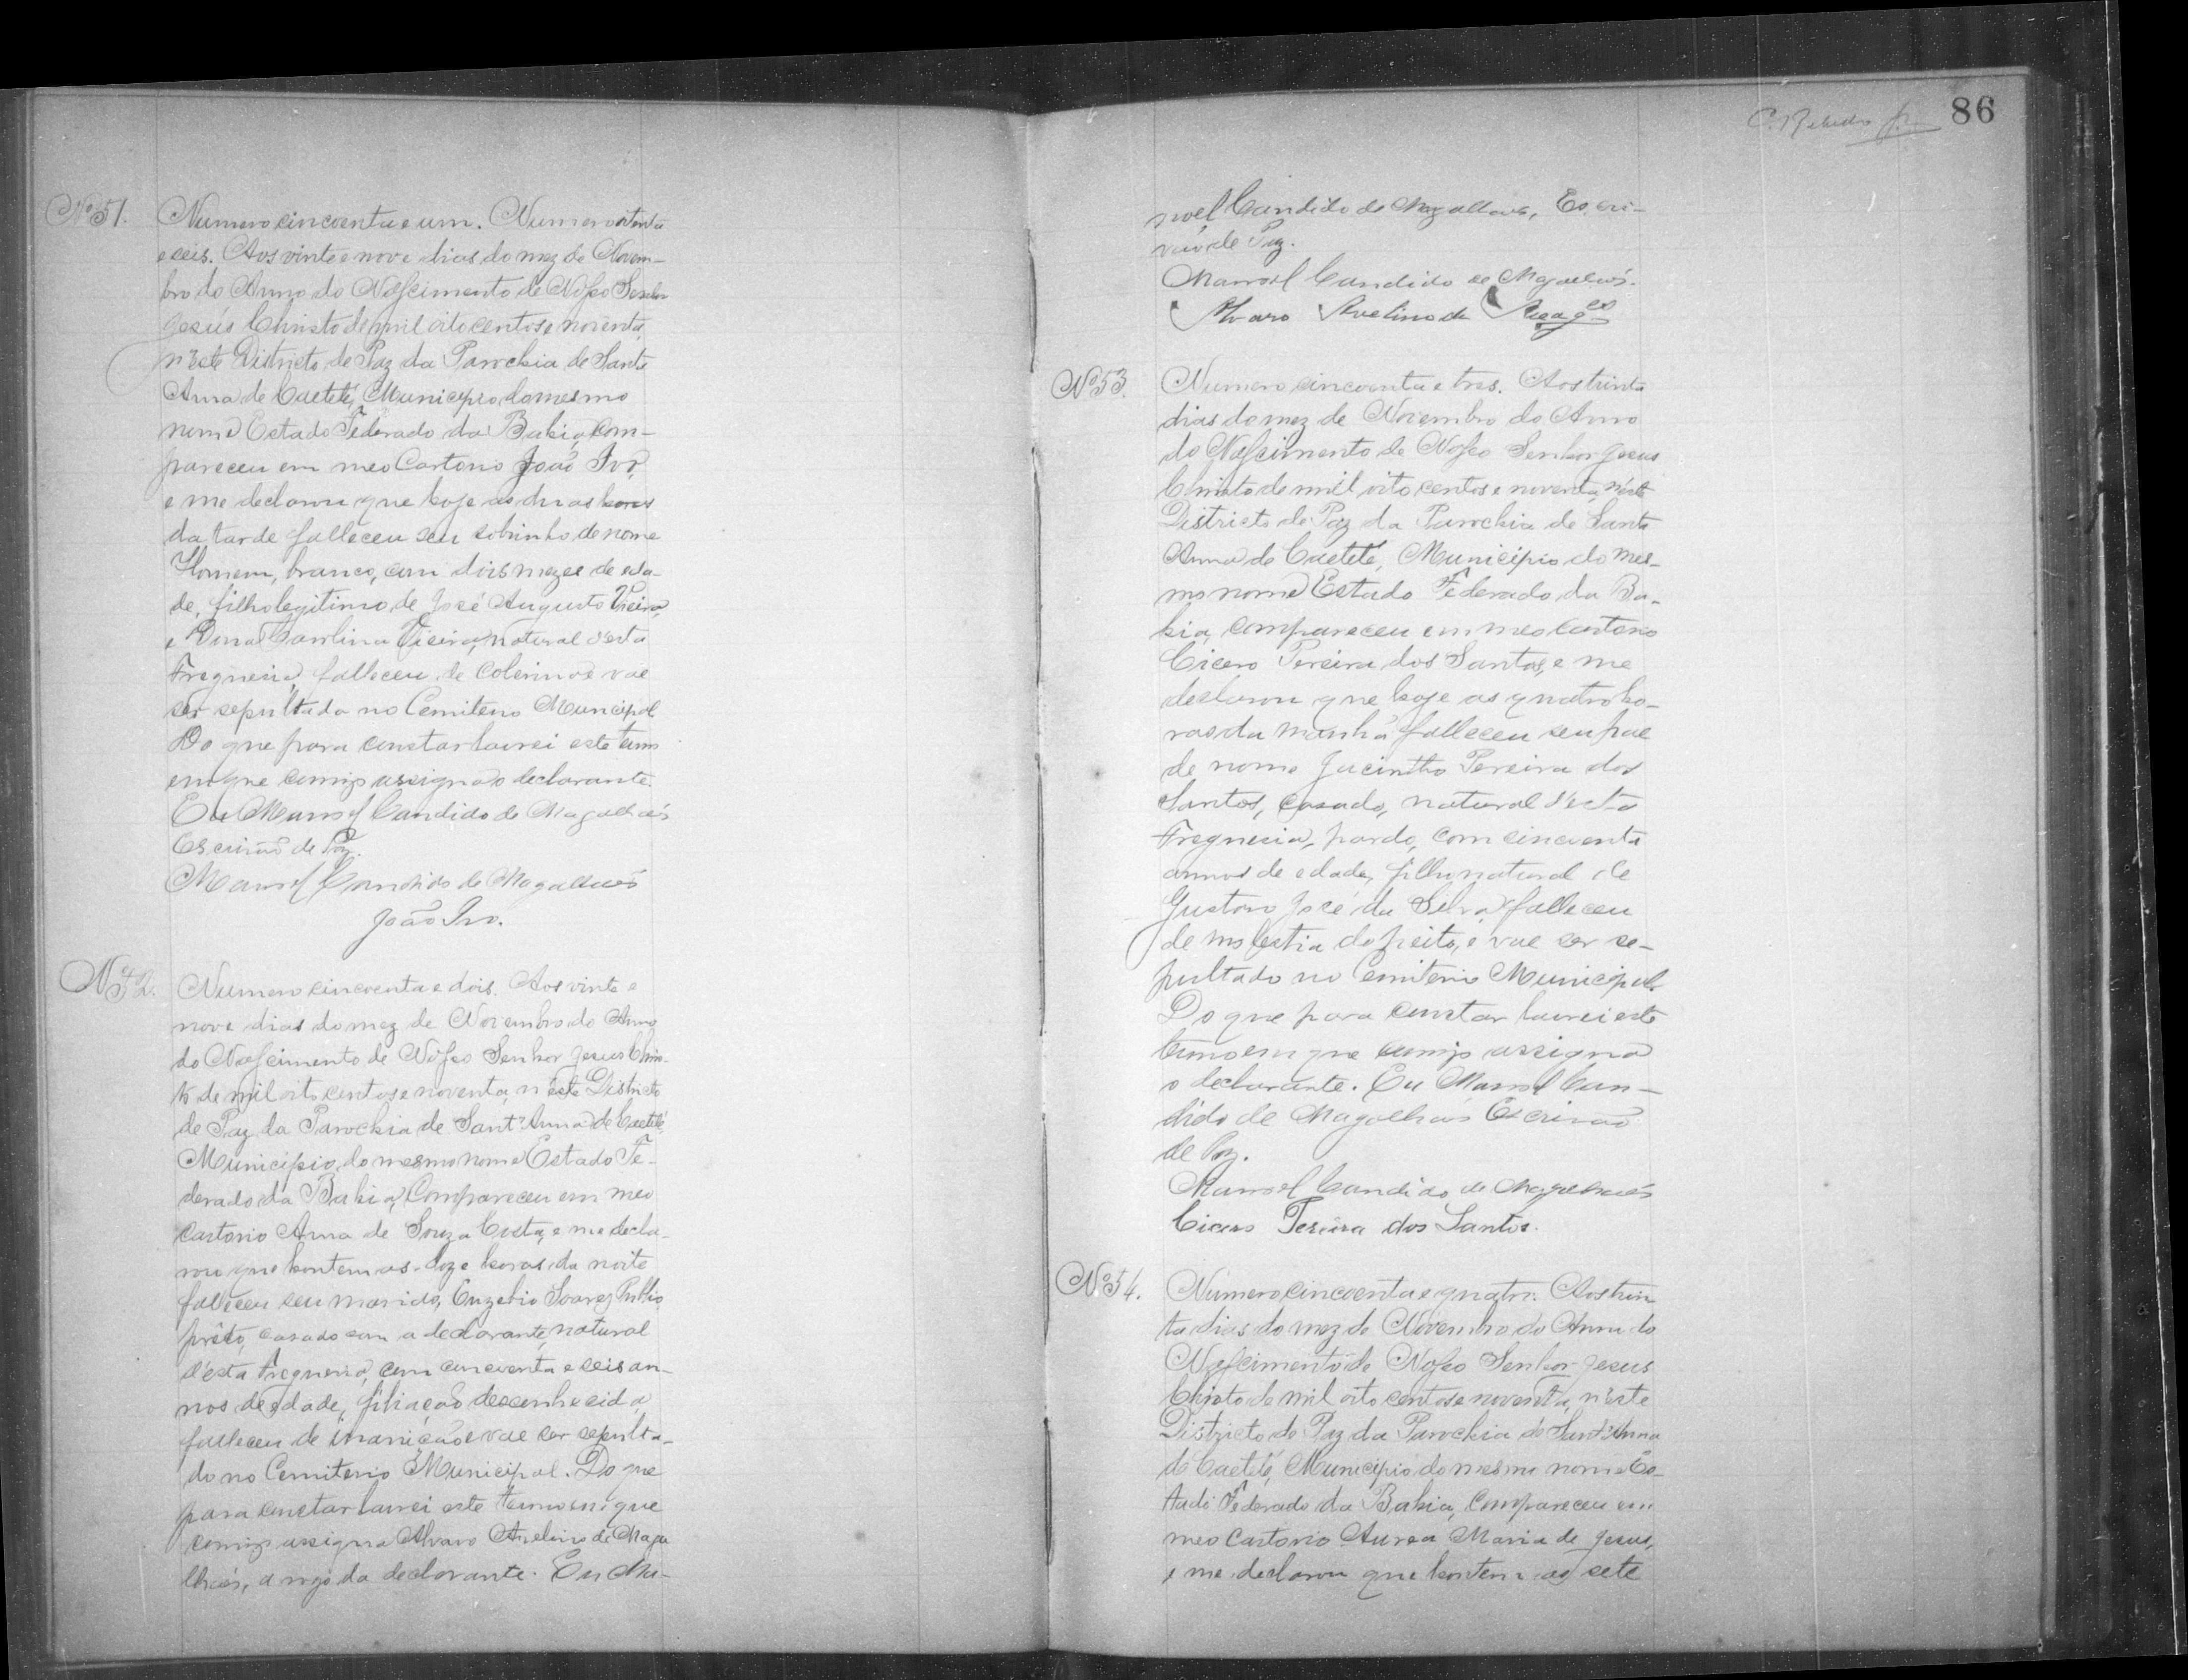 Nº 51. Numero cincoenta e um. Numero oitenta
e seis. Aos vinte e nove dias do mez de Novem-
bro do Anno do Nascimento de Nosso Senhor
Jesús Christo de mil oito centos e noventa,
n'este Districto de Paz da Parochia de Santa
Anna de Caeteté, Municipio do mesmo
nome Estado Federado da Bahia, com-
pareceu em meo Cartorio João Ivo,
e me declarou que hoje as duas horas
da tarde falleceu seu sobrinho de nome
Homem, branco, com dois mezes de eda-
de, filho legitimo de José Augusto Vieira,
e Carolina Vieira, natural d'esta
Freguesia, falleceu de e vae
ser sepultado no Cemiterio Municipal
Do que para constar lavrei este termo
em que comigo assigna o declarante.
Eu Manoel Candido de Magalhães
Escrivão de Paz.
Manoel Candido de Magalhães
João Ivo.
Nº 52. Numero cincoenta e dois. Aos vinte e
nove dias do mez de Novembro do Anno
do Nascimento de Nosso Senhor Jesus Chris-
to de mil oito centos e noventa, n'este Districto
de Paz da Parochia de Sant'Anna de Caeteté,
Municipio do mesmo nome Estado Fe-
derado da Bahia, Compareceu em meo
Cartorio Anna de Souza Costa, e me decla-
rou que hontem as doze horas da noite
falleceu seu marido, Euzebio Soares Publio,
prêto, casado com a declarante, natural
d'esta Freguesia, com cincoenta e seis an-
nos de edade, filiação desconhecida,
falleceu de inanição e vae ser sepulta-
do no Cemiterio Municipal. Do que
para constar lavrei este termo em que
comigo assigna Alvaro Avelino de Maga
lhães, a rogo da declarante. Eu Ma-
86
noel Candido de Magalhães, Escri-
vão de Paz.
Manoel Candido de Magalhães.
Alvaro Avelino de Magᵉˢ
Nº 53. Numero cincoenta e tres. Aos trinta
dias do mez de Novembro do Anno
do Nascimento de Nosso Senhor Jesus
Christo de mil oito centos e noventa, n'este
Districto de Paz da Parochia de Santa
Anna de Caeteté, Municipio do mes-
mo nome Estado Federado da Ba-
hia, compareceu em meo Cartorio
Cicero Pereira dos Santos, e me
declarou que hoje as quatro ho-
ras da manhã falleceu seu pae
de nome Jacintho Pereira dos
Santos, casado, natural d'esta
Freguesia, pardo, com cincoenta
annos de edade, filho natural de
Gustavo José da Silva, falleceu
de molestia do peito, e vae ser se-
pultado no Cemiterio Municipal.
Do que para constar lavrei este
termo em que comigo assigna
o declarante. Eu Manoel Can-
dido de Magalhães Escrivão
de Paz.
Manoel Candido de Magalhães
Cicero Pereira dos Santos.
Nº 54. Numero cincoenta e quatro. Aos trin
ta dias do mez de Novembro do Anno do
Nascimento de Nosso Senhor Jesus
Christo de mil oito centos e noventa, n'este
Districto de Paz da Parochia de Sant'Anna
de Caeteté, Municipio do mesmo nome Es-
tado Federado da Bahia, Compareceu em
meo Cartorio Aurea Maria de Jesus,
e me declarou que hontem as sete